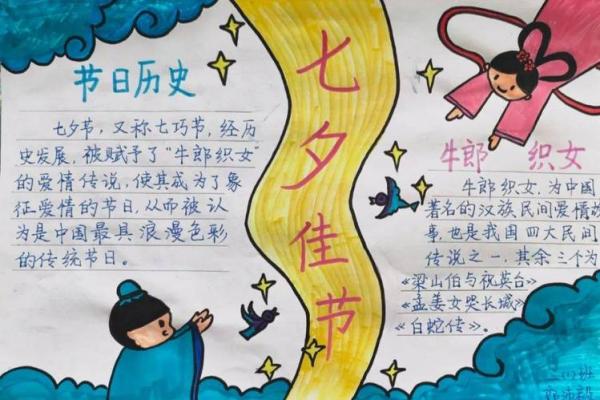 七夕佳节
节日历史
七夕节，又称七巧节，经历
史发展，被赋予了“牛郎织女”
的爱情传说，使其成为了象
征爱情的节日，从而被认
为是中国最具浪漫色彩
的传统节日。
牛郎 织女
牛郎织女，为中国
著名的汉族民间爱情故
事，也是我国四大民间
传说之一，其余三个为
《梁山伯与祝英台》
《孟姜女哭长城》
《白蛇传》。